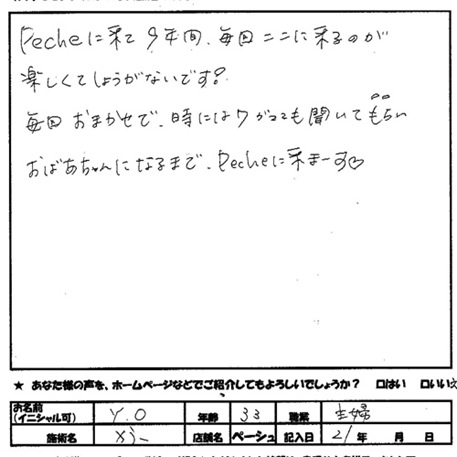 Pecheに来て9年間、毎回ここに来るのが
楽しくてしょうがないです!
毎回おまかせで、時にはワガママも聞いてもらい
おばあちゃんになるまで、Pecheに来まーす♡
★ あなた様の声を、ホームページなどでご紹介してもよろしいでしょうか? 口はい 口いいえ
お名前(イニシャル可) Y.O 年齢 33 職業 主婦
施術名 店舗名 ペーシュ 記入日 21年 月 日